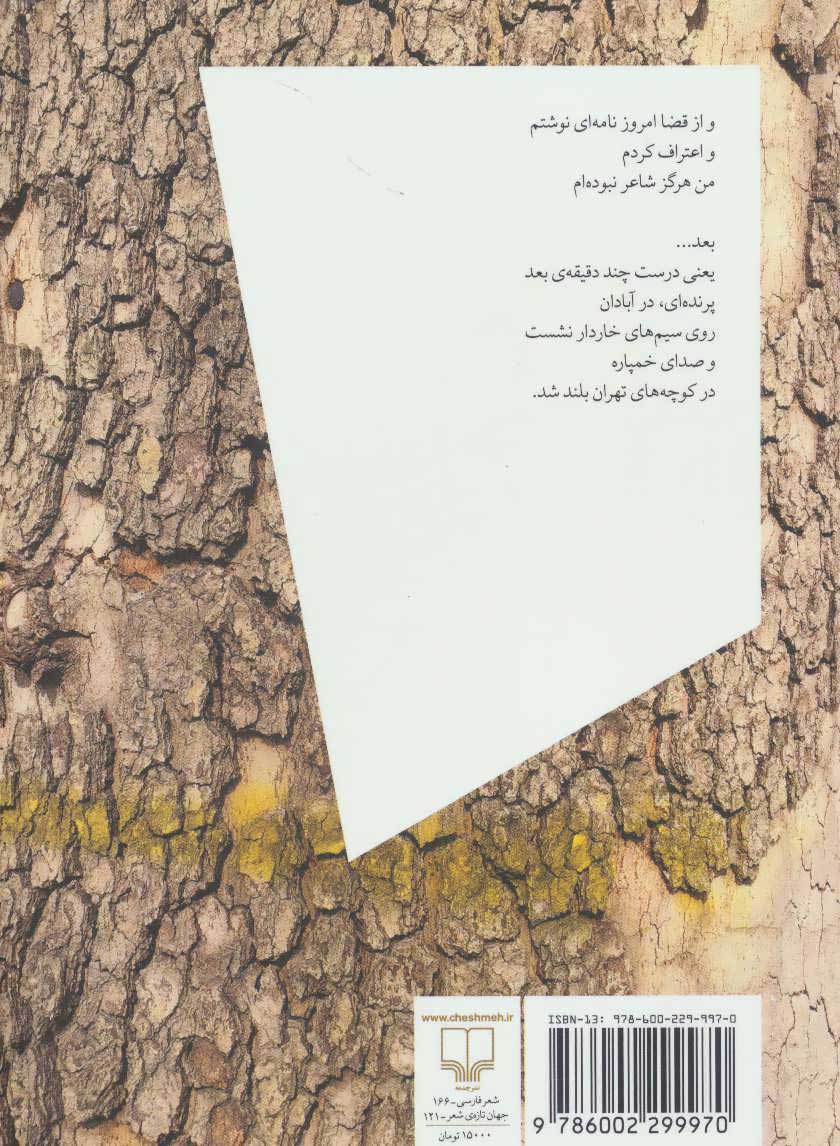 و از قضا امروز نامه‌ای نوشتم
و اعتراف کردم
من هرگز شاعر نبوده‌ام
بعد...
یعنی درست چند دقیقه‌ی بعد
پرنده‌ای، در آبادان
روی سیم‌های خاردار نشست
و صدای خمپاره
در کوچه‌های تهران بلند شد.
www.cheshmeh.ir
نشرچشمه
شعر فارسی-۱۶۶
جهان تازه‌ی شعر-۱۲۱
۱۵۰۰۰ تومان
ISBN-13: 978-600-229-997-0
9 786002 299970